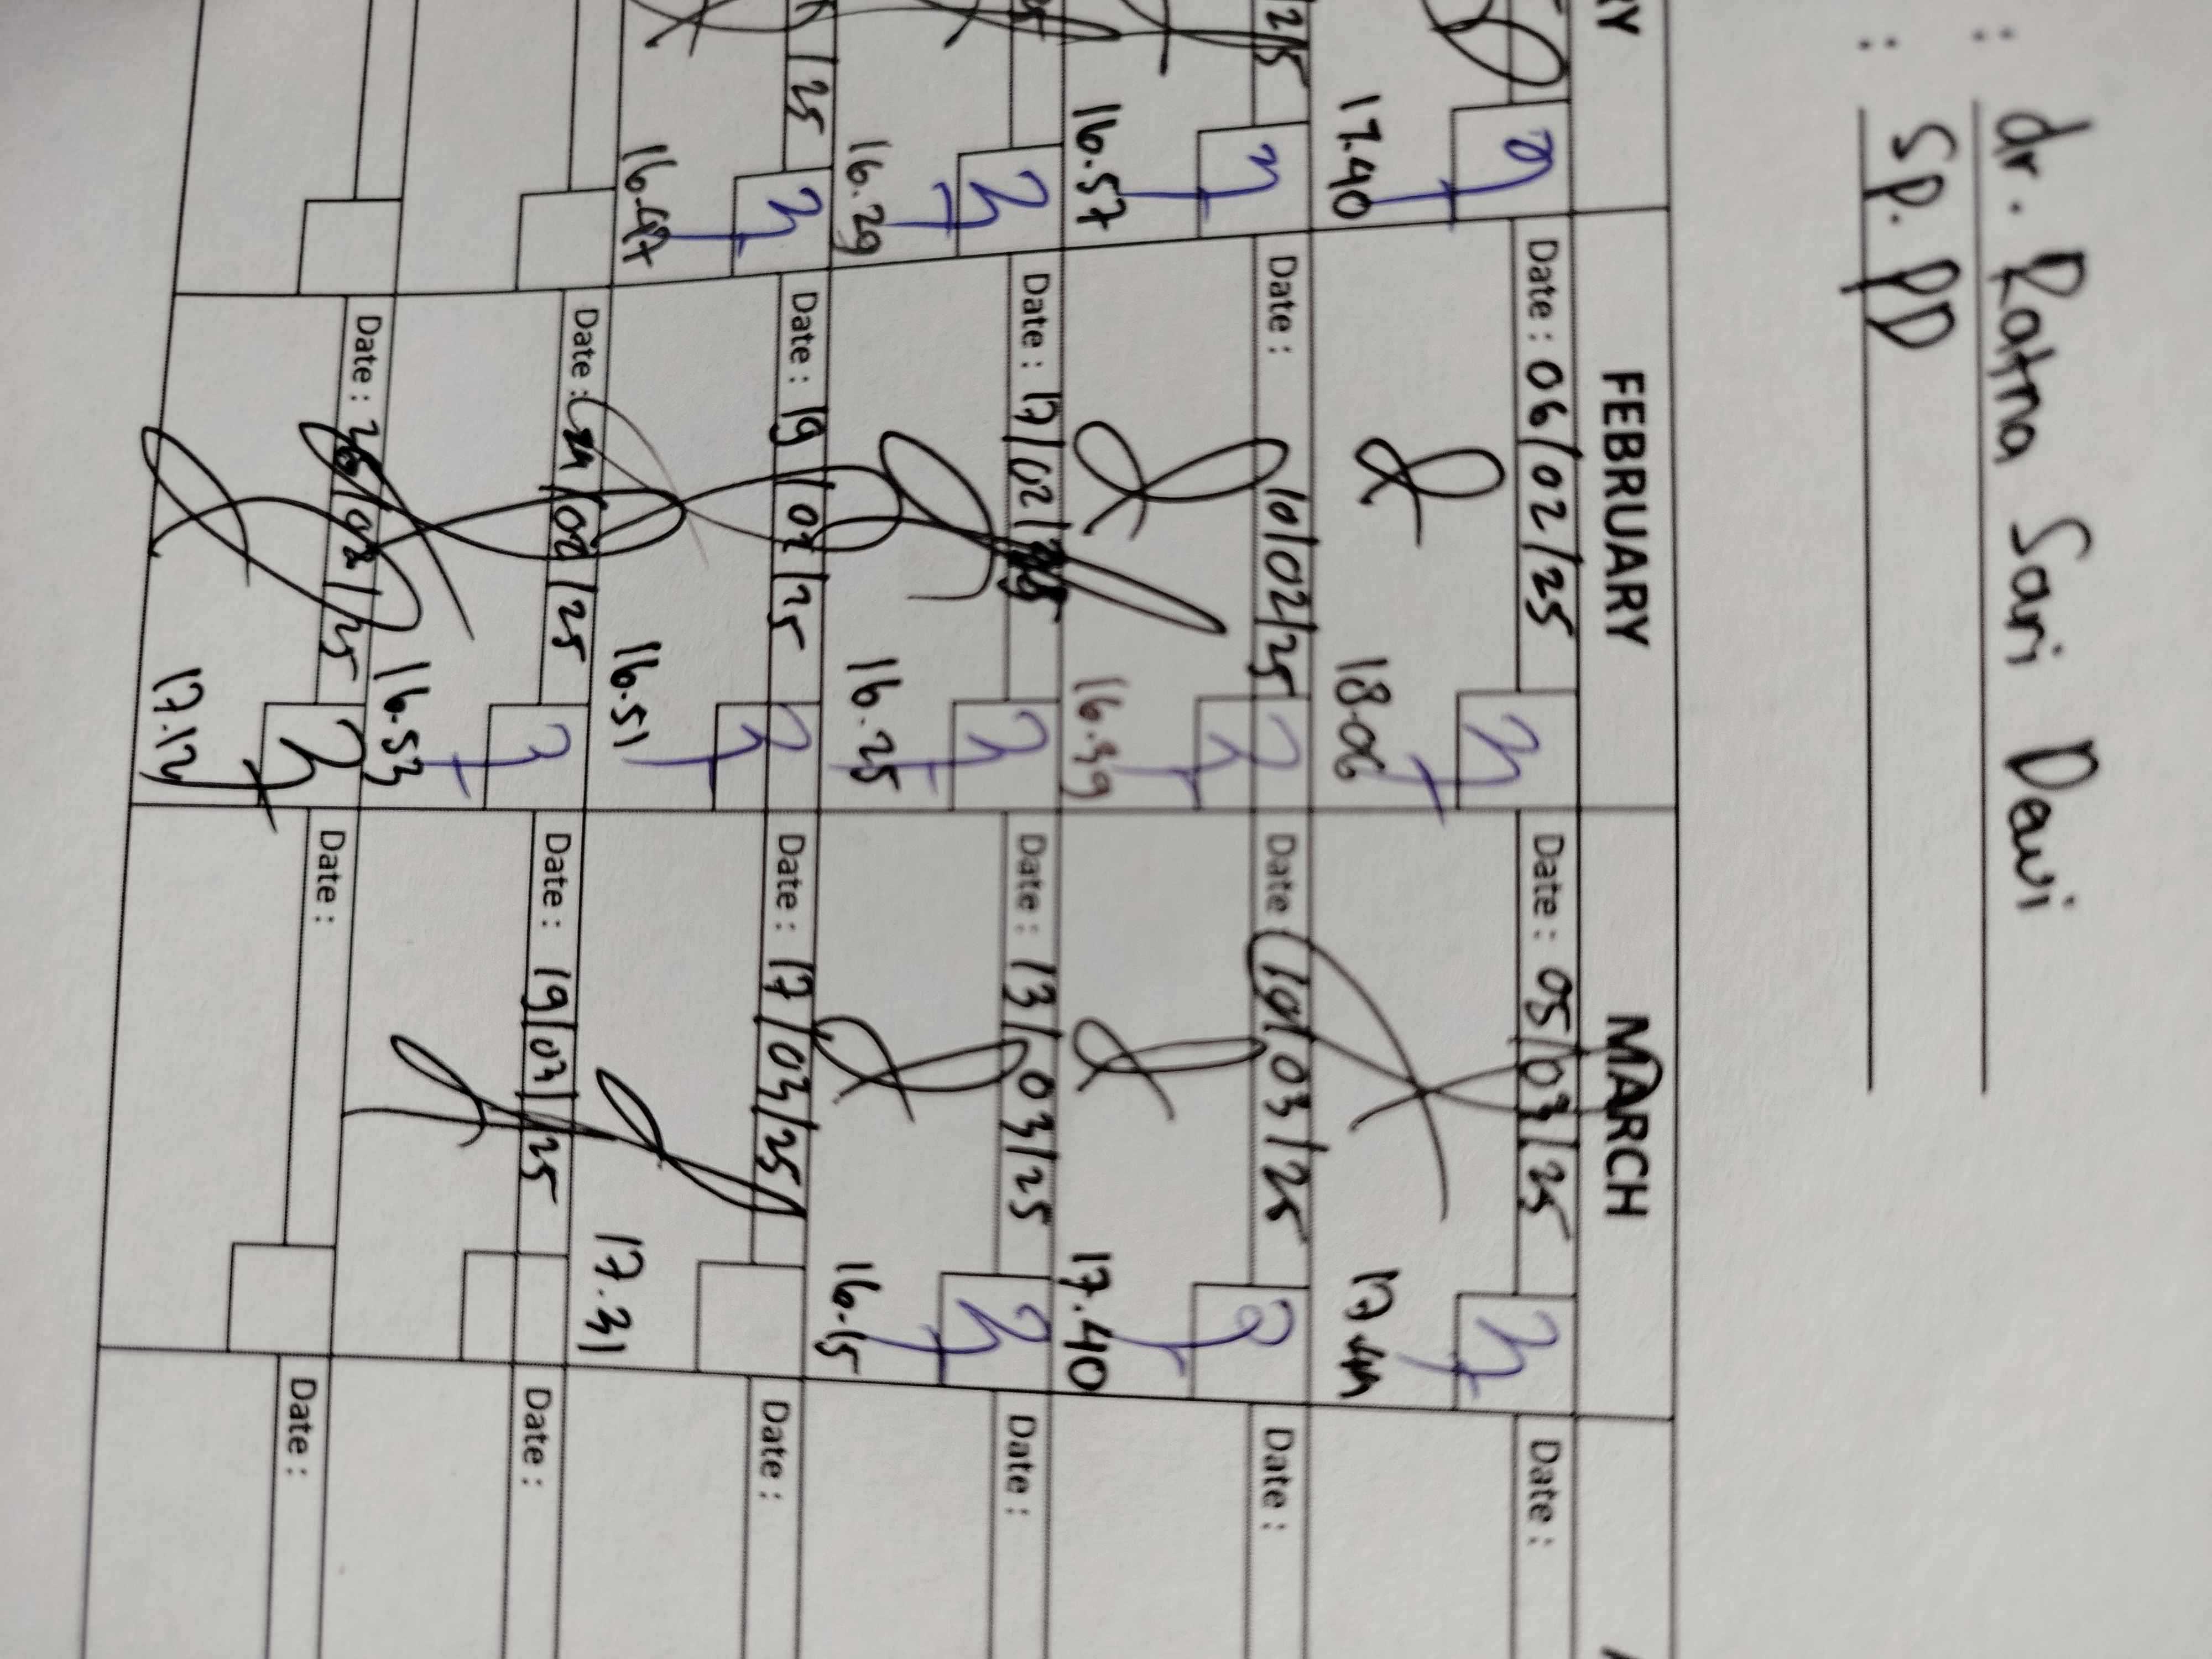 : dr. Ratna Sari Dewi
: Sp. PD
RY FEBRUARY MARCH
Date : 06/02/25 Date : 05/03/25 Date :
17.40 18.06 17.44
2/25 Date : 10/02/25 Date : 10/03/25 Date :
16.57 16.39 17.40
Date : 17/02/25 Date : 13/03/25 Date :
16.29 16.25 16.15
/25 Date : 19/02/25 Date : 17/03/25 Date :
16.47 16.51 17.31
Date : 24/02/25 Date : 19/03/25 Date :
16.53
Date : 26/02/25 Date : Date :
17.12